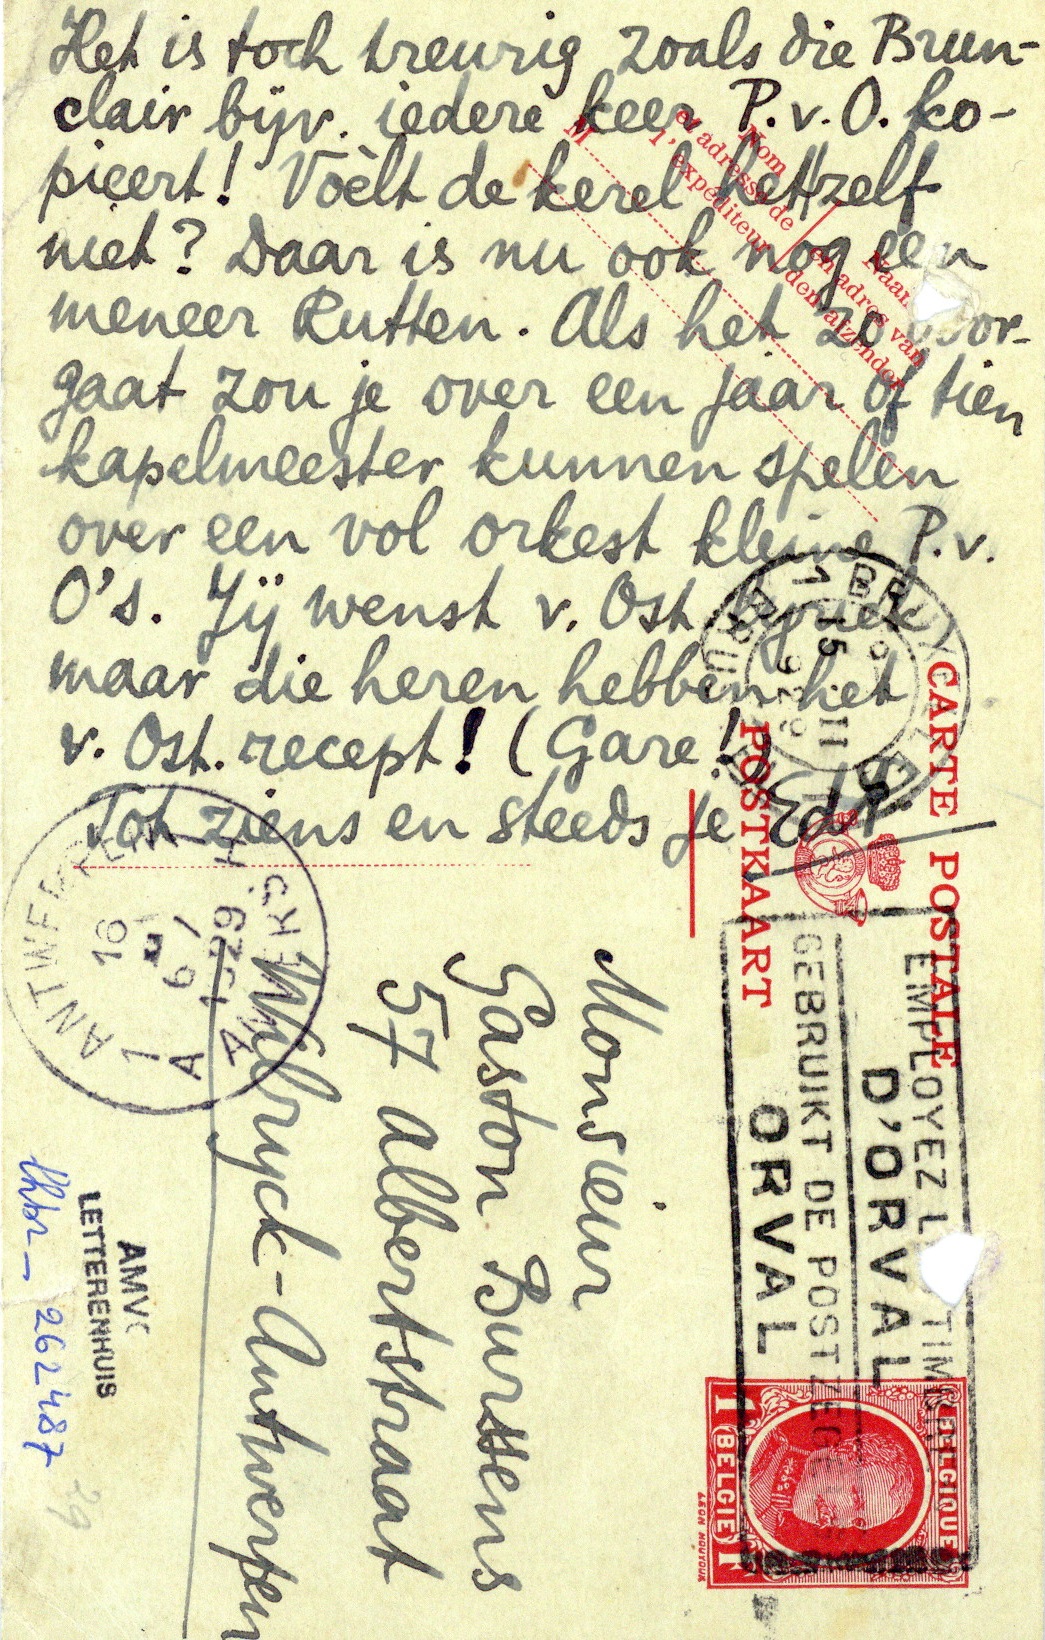 Het is toch treurig zoals die Brun-
clair bijv. iedere keer P.v.O. ko-
pieert! Voèlt de kerel het zelf
niet? Daar is nu ook nog een
meneer Rutten. Als het zo voor-
gaat zou je over een jaar of tien
kapelmeester kunnen spelen
over een vol orkest kleine P.v.
O's. Jij wenst v. Ost. lyriek
maar die heren hebben het
v. Ost. recept! (Gare!)
Tot ziens en steeds je
M
Nom
et adresse de
l'expéditeur
Naam
en adres van
den afzender
CARTE POSTALE
POSTKAART
EMPLOYEZ LE TIMBRE
D'ORVAL
GEBRUIKT DE POSTZEGEL
ORVAL
BELGIQUE
1 BELGIE 1
Monsieur
Gaston Burssens
57 Albertstraat
Wilryck-Antwerpen
1 ANTWERPEN
16
1929
AMVC
LETTERENHUIS
262487
29